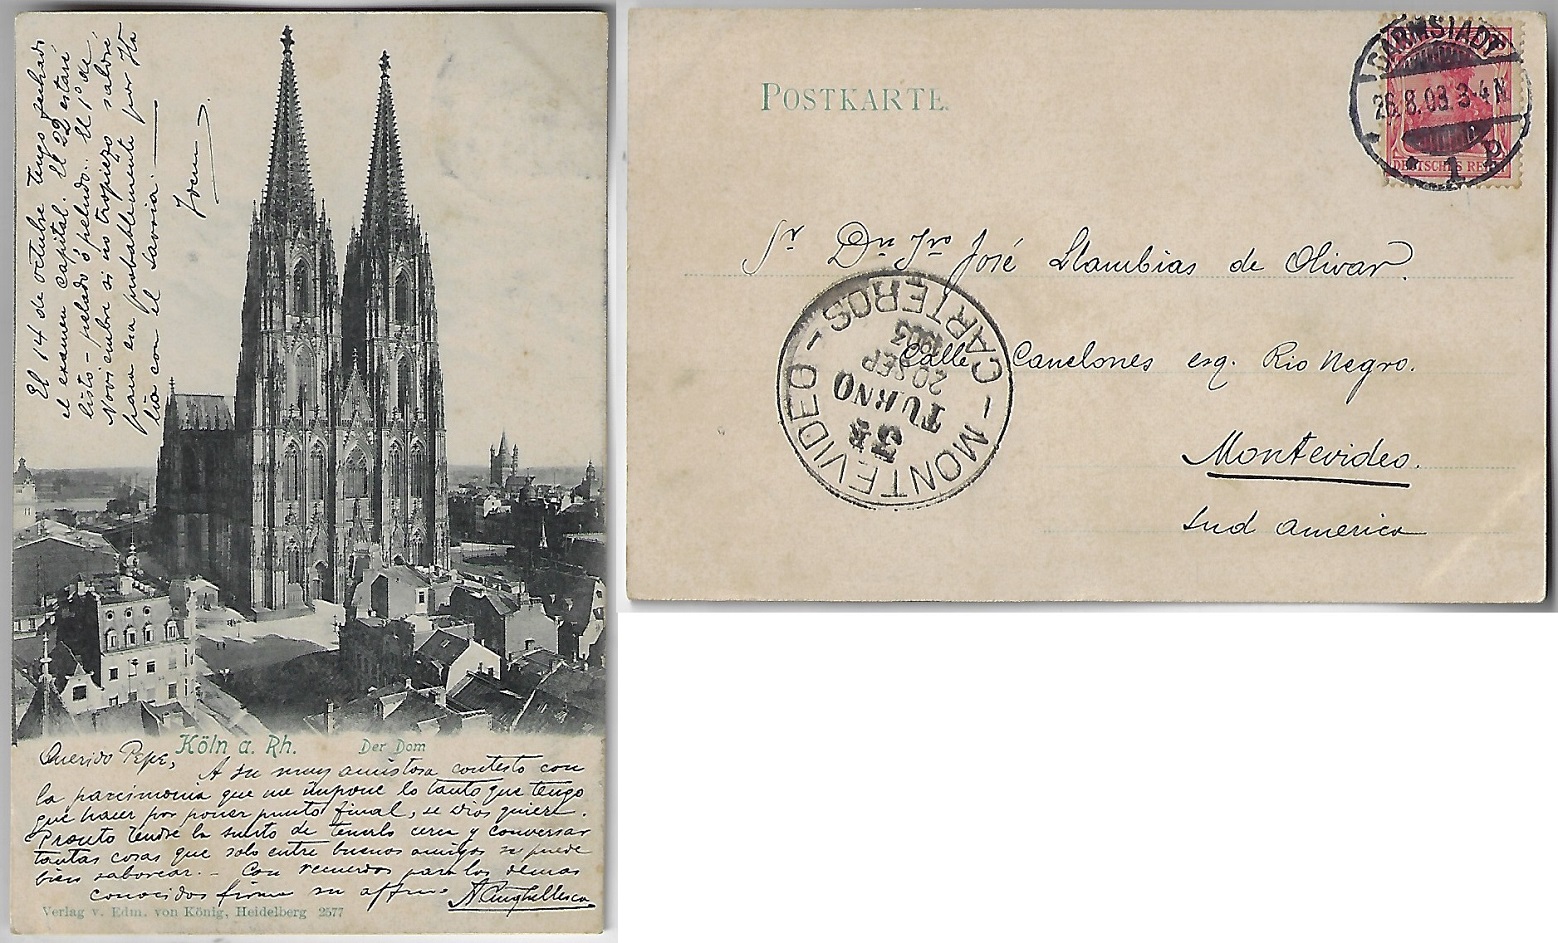 El 14 de octubre tengo
el examen capital. El 22 estaré
listo - pelado ó peludo. El 1º de
Noviembre si no tropiezo saldré
para esa probablemente por Ita
lia con el Savoia.
Köln a. Rh. Der Dom
Querido Pepe,
A su muy amistosa contesto con
la parcimonia que me impone lo tanto que tengo
que hacer por poner punto final, se Dios quiere.
Pronto tendré la suerte de tenerlo cerca y conversar
tantas cosas que solo entre buenos amigos se puede
bien saborear. - Con recuerdos para los demas
conocidos firma su affmo
Verlag v. Edm. von König, Heidelberg 2577
POSTKARTE.
DARMSTADT
26.8.03. 3-4 N.
* 1 p
DEUTSCHES REICH
Sr Dn Jro José Llambias de Olivar.
Calle Canelones esq. Rio Negro.
Montevideo.
Sud America
- MONTEVIDEO - CARTEROS
3er
TURNO
20 SEP
1903